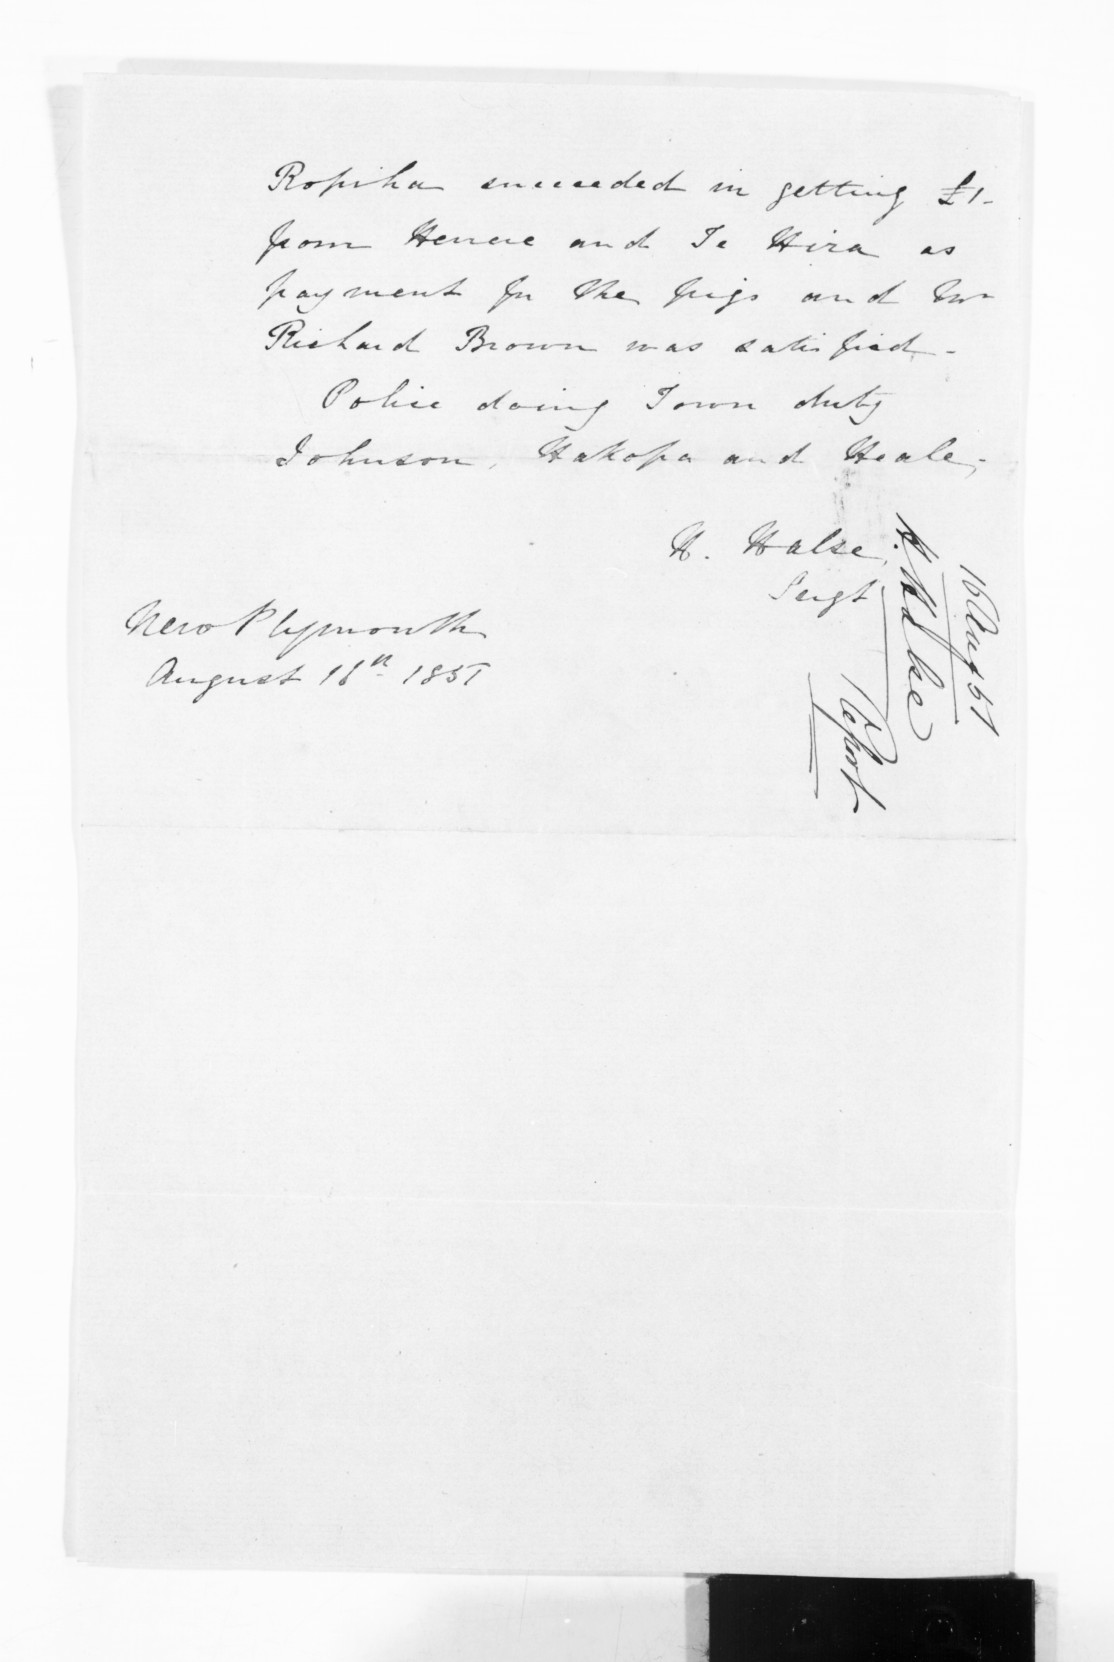 Ropiha succeeded in getting £1-
from Henere and Te Hira as
payment for the pigs and Mr
Richard Brown was satisfied-
Police doing Town duty
Johnson, Hakopa and Heale,
H. Halse,
Sergt
New Plymouth
August 16th 1851
16 Aug 51
H. Halse
Report